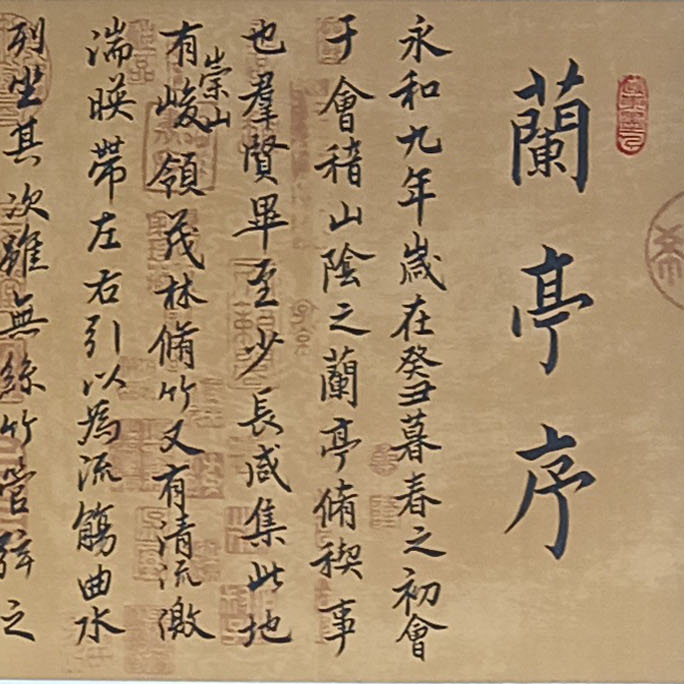 蘭亭序
永和九年歲在癸丑暮春之初會
于會稽山陰之蘭亭脩禊事
也羣賢畢至少長咸集此地
有崇山峻領茂林脩竹又有清流激
湍暎帶左右引以為流觴曲水
列坐其次雖無絲竹管弦之